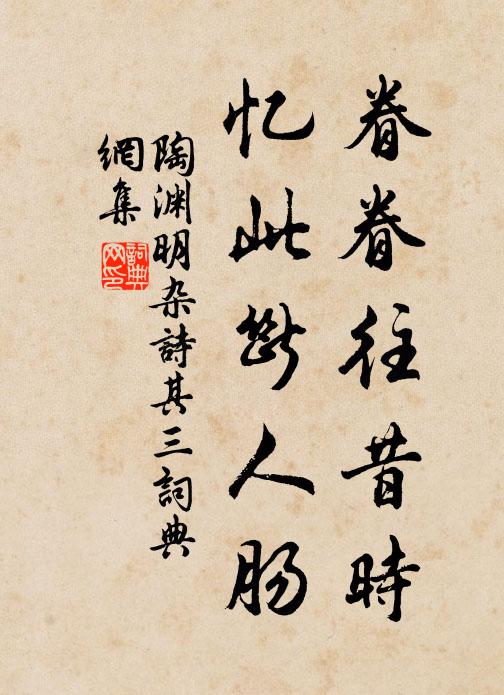 眷眷往昔時
忆此斷人肠
陶渊明杂詩其三詞典
網集
詞典
网印